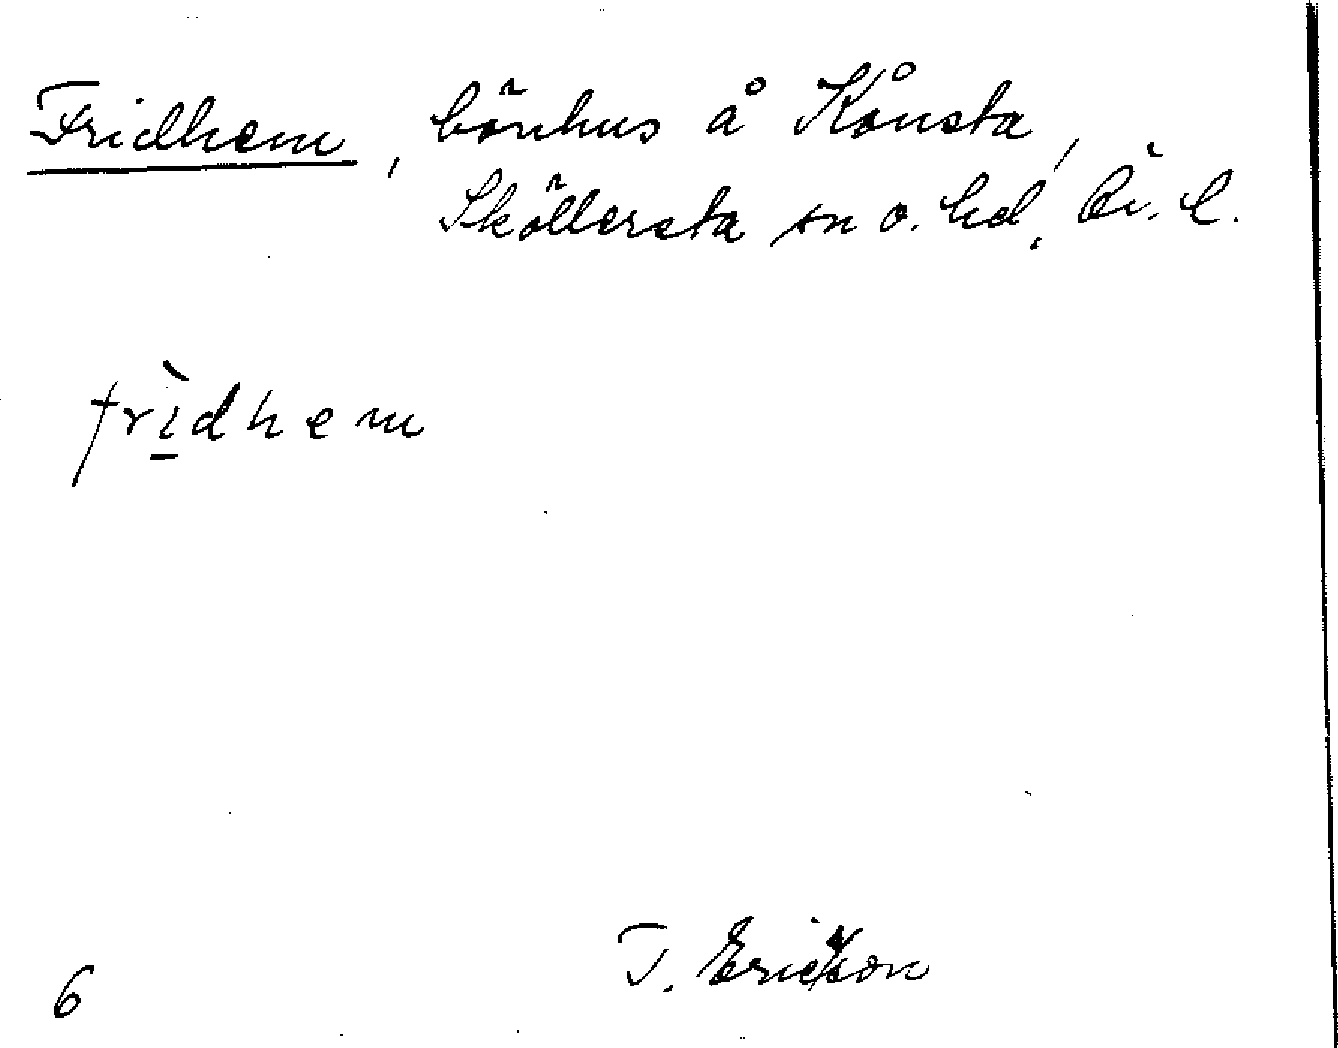 Fridhem, bönhus å Kånsta,
Sköllersta sn o. hd, Ör. l.
frìdhem
6
T. Ericsson